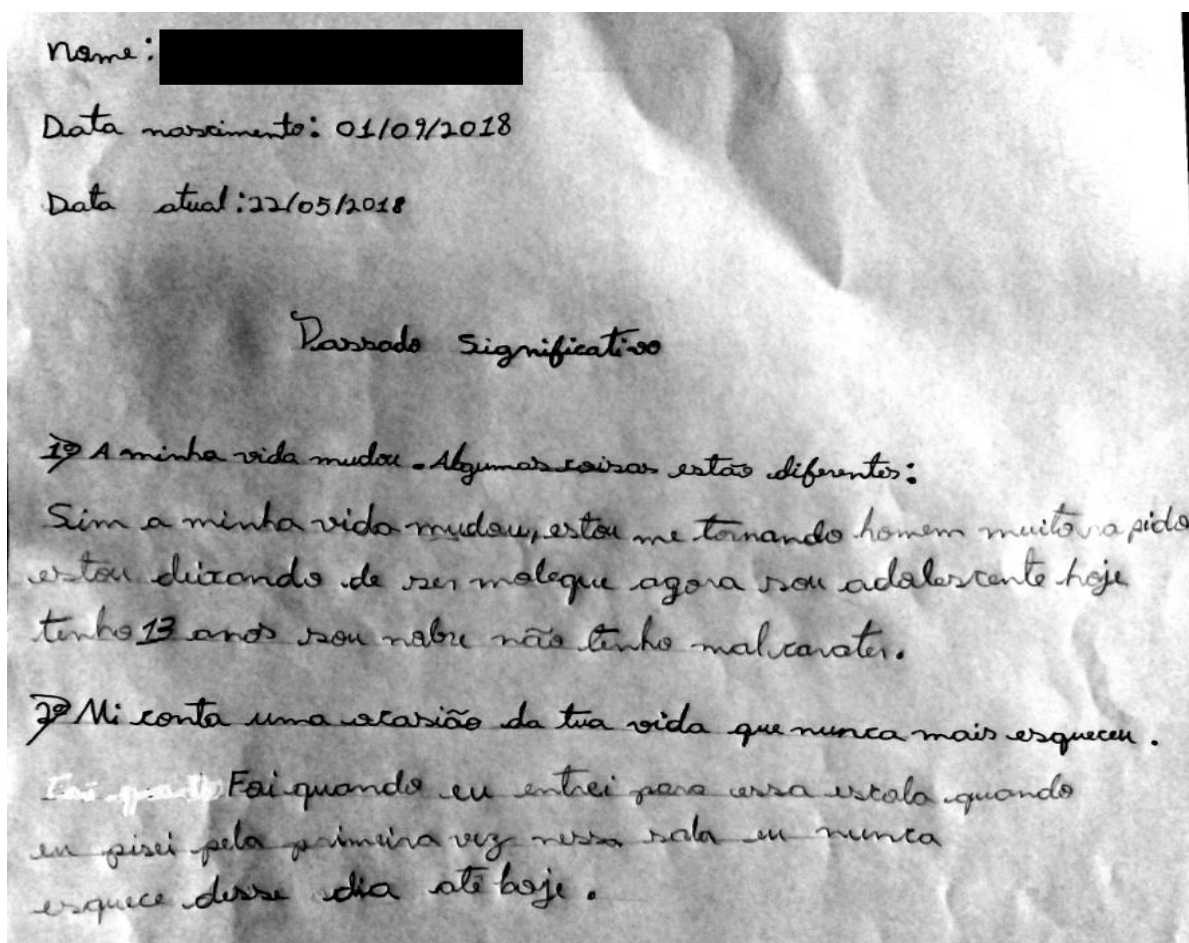 Nome:
Data nascimento: 01/09/2018
Data atual: 22/05/2018
Passado Significativo
1º A minha vida mudou. Algumas coisas estão diferentes:
Sim a minha vida mudou, estou me tornando homem muito rapido
estou deixando de ser moleque agora sou adolescente hoje
tenho 13 anos sou nobre não tenho mal carater.
2º Mi conta uma ocasião da tua vida que nunca mais esqueceu.
Foi quando eu entrei para essa escola quando
eu pisei pela primeira vez nessa sala eu nunca
esquece desse dia até hoje.